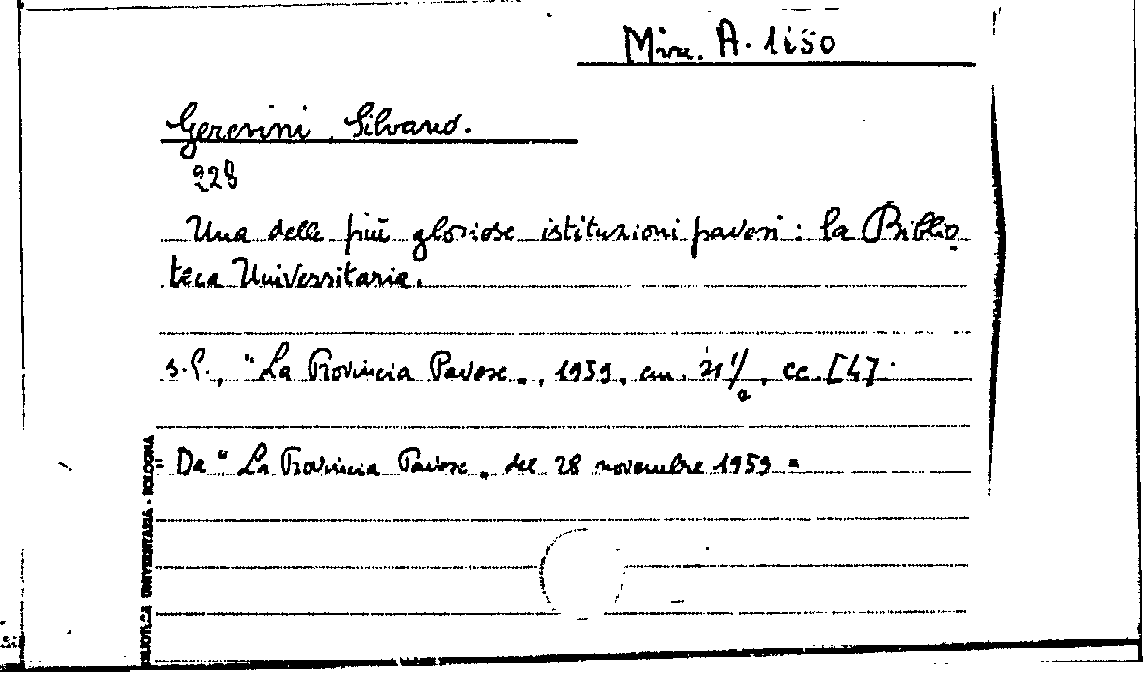 Misc. A. 1650
Gerevini Silvano.
228
Una delle più gloriose istituzioni pavesi : la Biblio
teca Universitaria.
s.l., "La Provincia Pavese„, 1959, cm. 21 1/2, cc. [4].
= Da "La Provincia Pavese„ del 28 novembre 1959 =
BIBLIOTECA UNIVERSITARIA - BOLOGNA